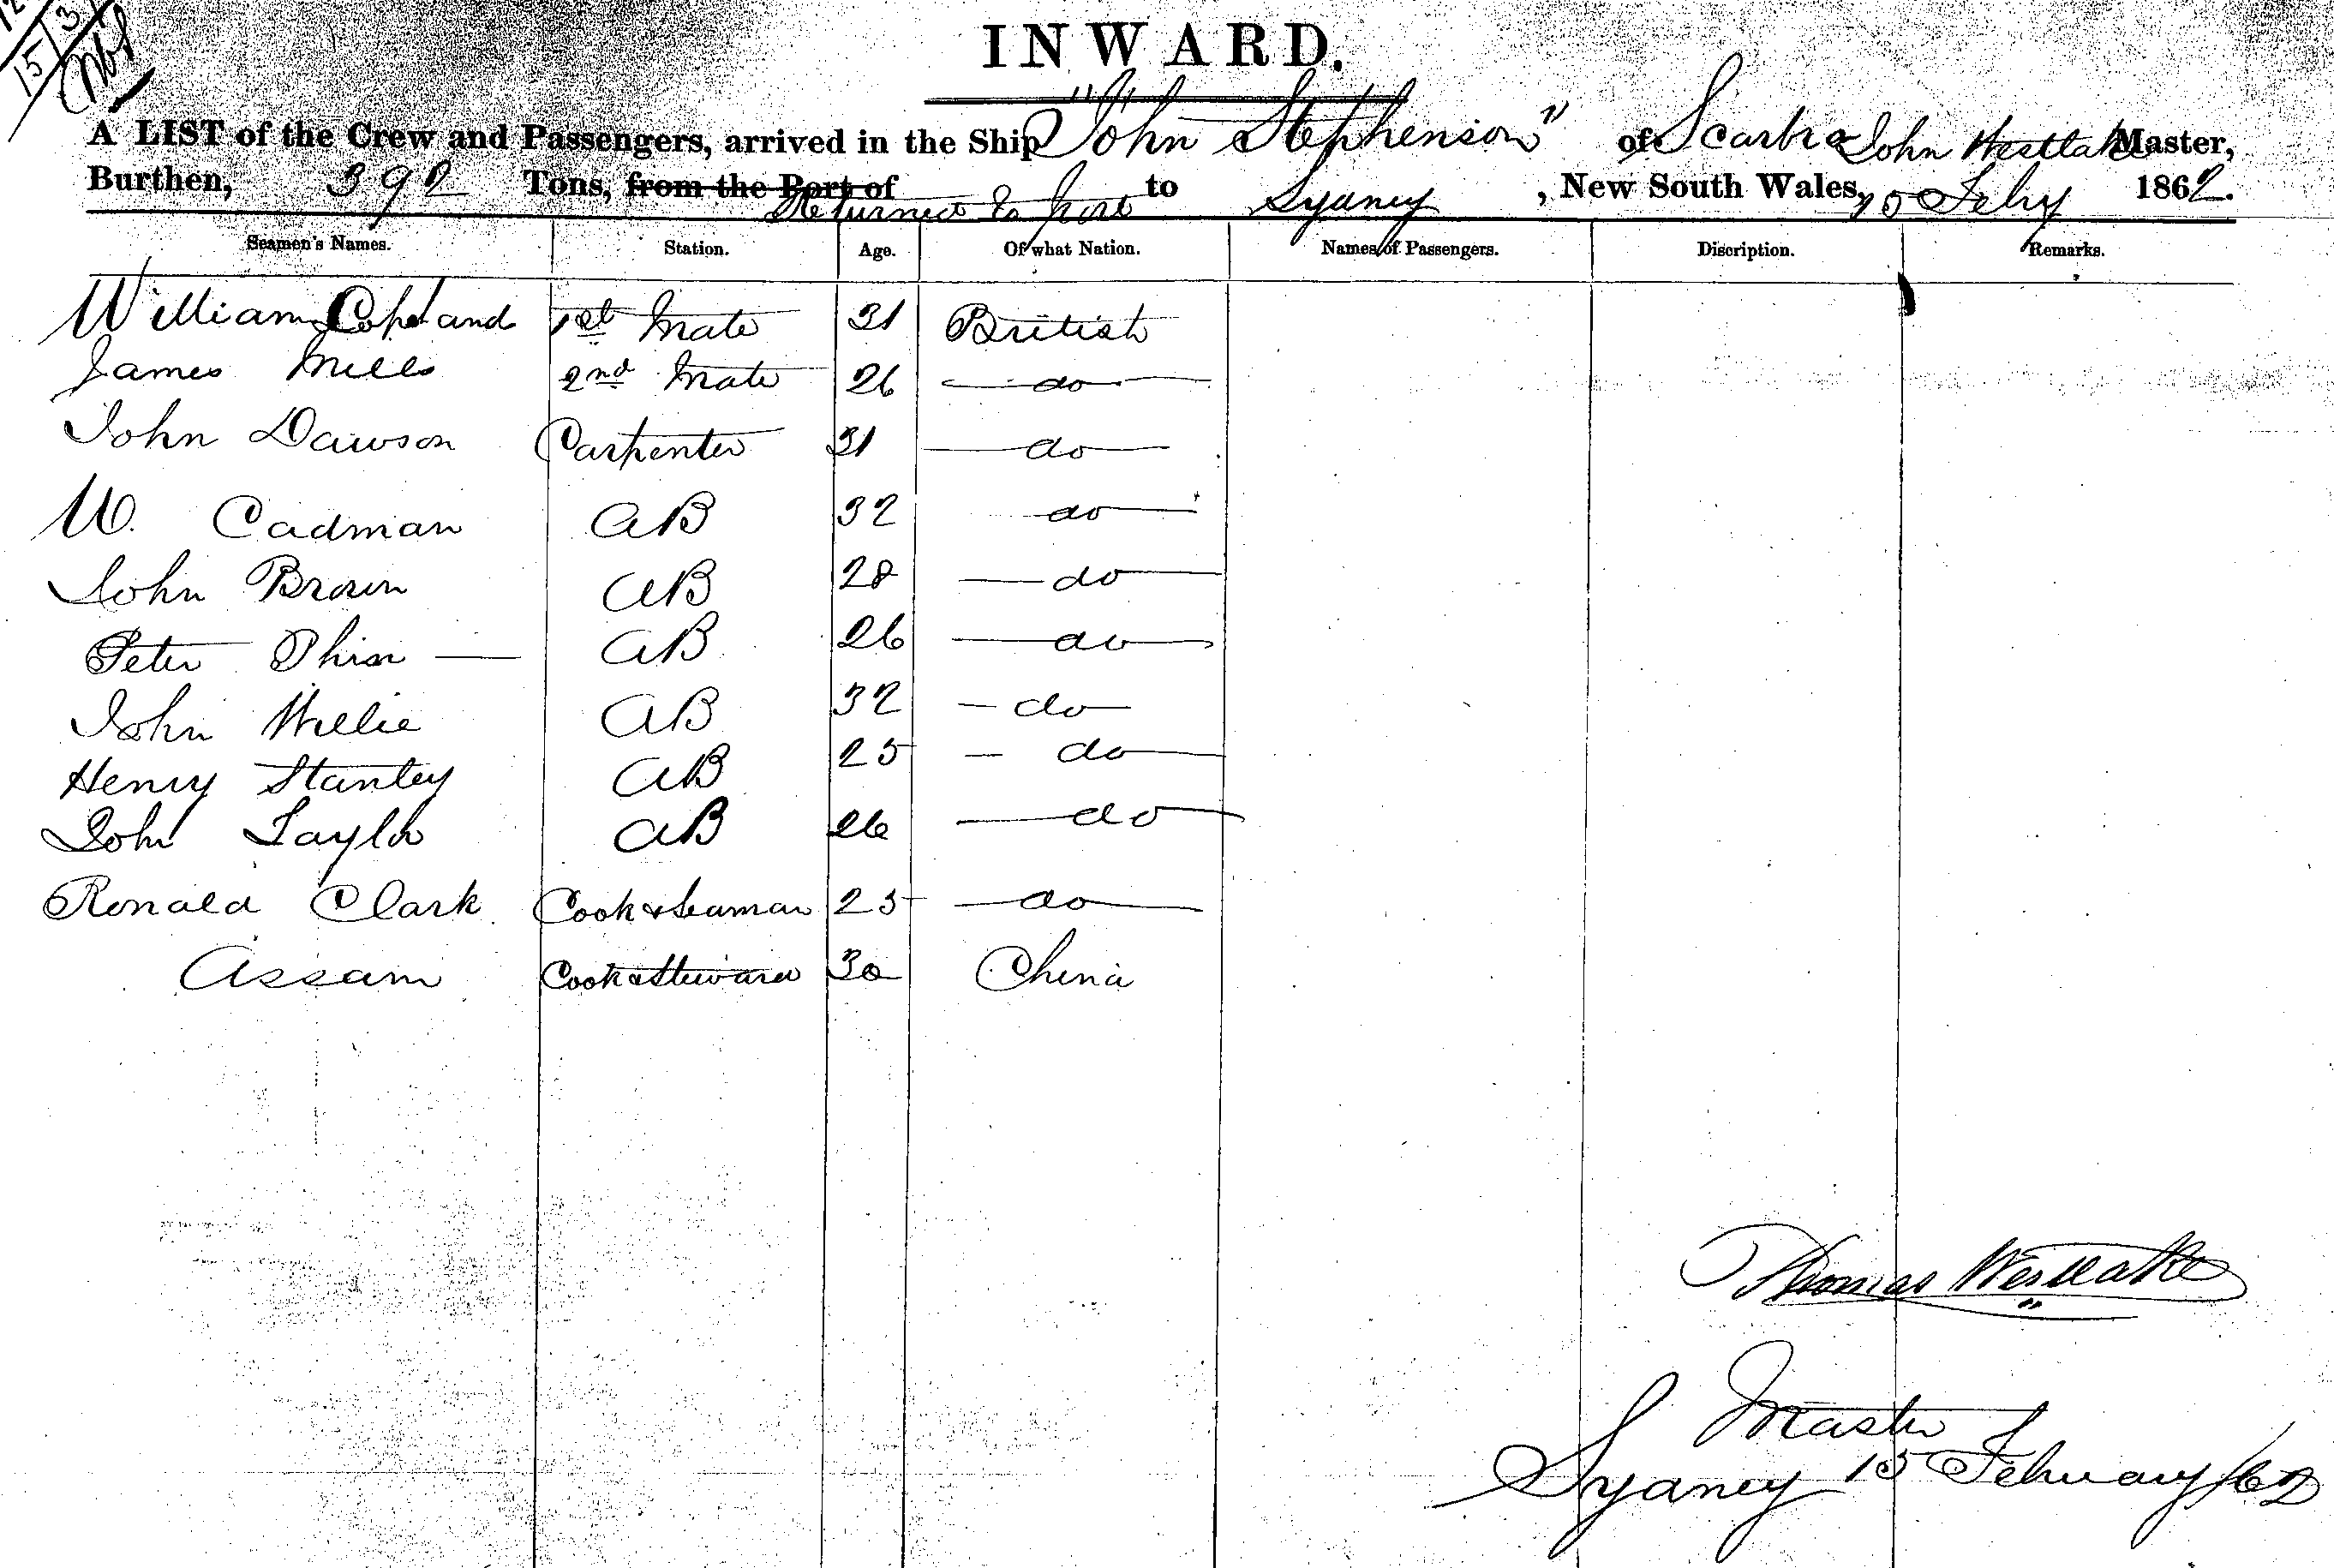 15/3
INWARD.
A LIST of the Crew and Passengers, arrived in the Ship "John Stephenson" of Scarbro John Westlake Master,
Burthen, 392 Tons, from the Port of Returned to port to Sydney, New South Wales, 15 Feby 1862.
Seamen's Names. Station. Age. Of what Nation. Names of Passengers. Discription. Remarks.
William Copeland 1st Mate 31 British
James Mills 2nd Mate 26 do
John Dawson Carpenter 31 do
W. Cadman AB 32 do
John Brown AB 28 do
Peter Phin AB 26 do
John Willie AB 32 do
Henry Stanley AB 25 do
John Taylor AB 26 do
Ronald Clark Cook & Seaman 25 do
Assam Cook & Steward 30 China
Thomas Westlake
Master
Sydney 15 February /62